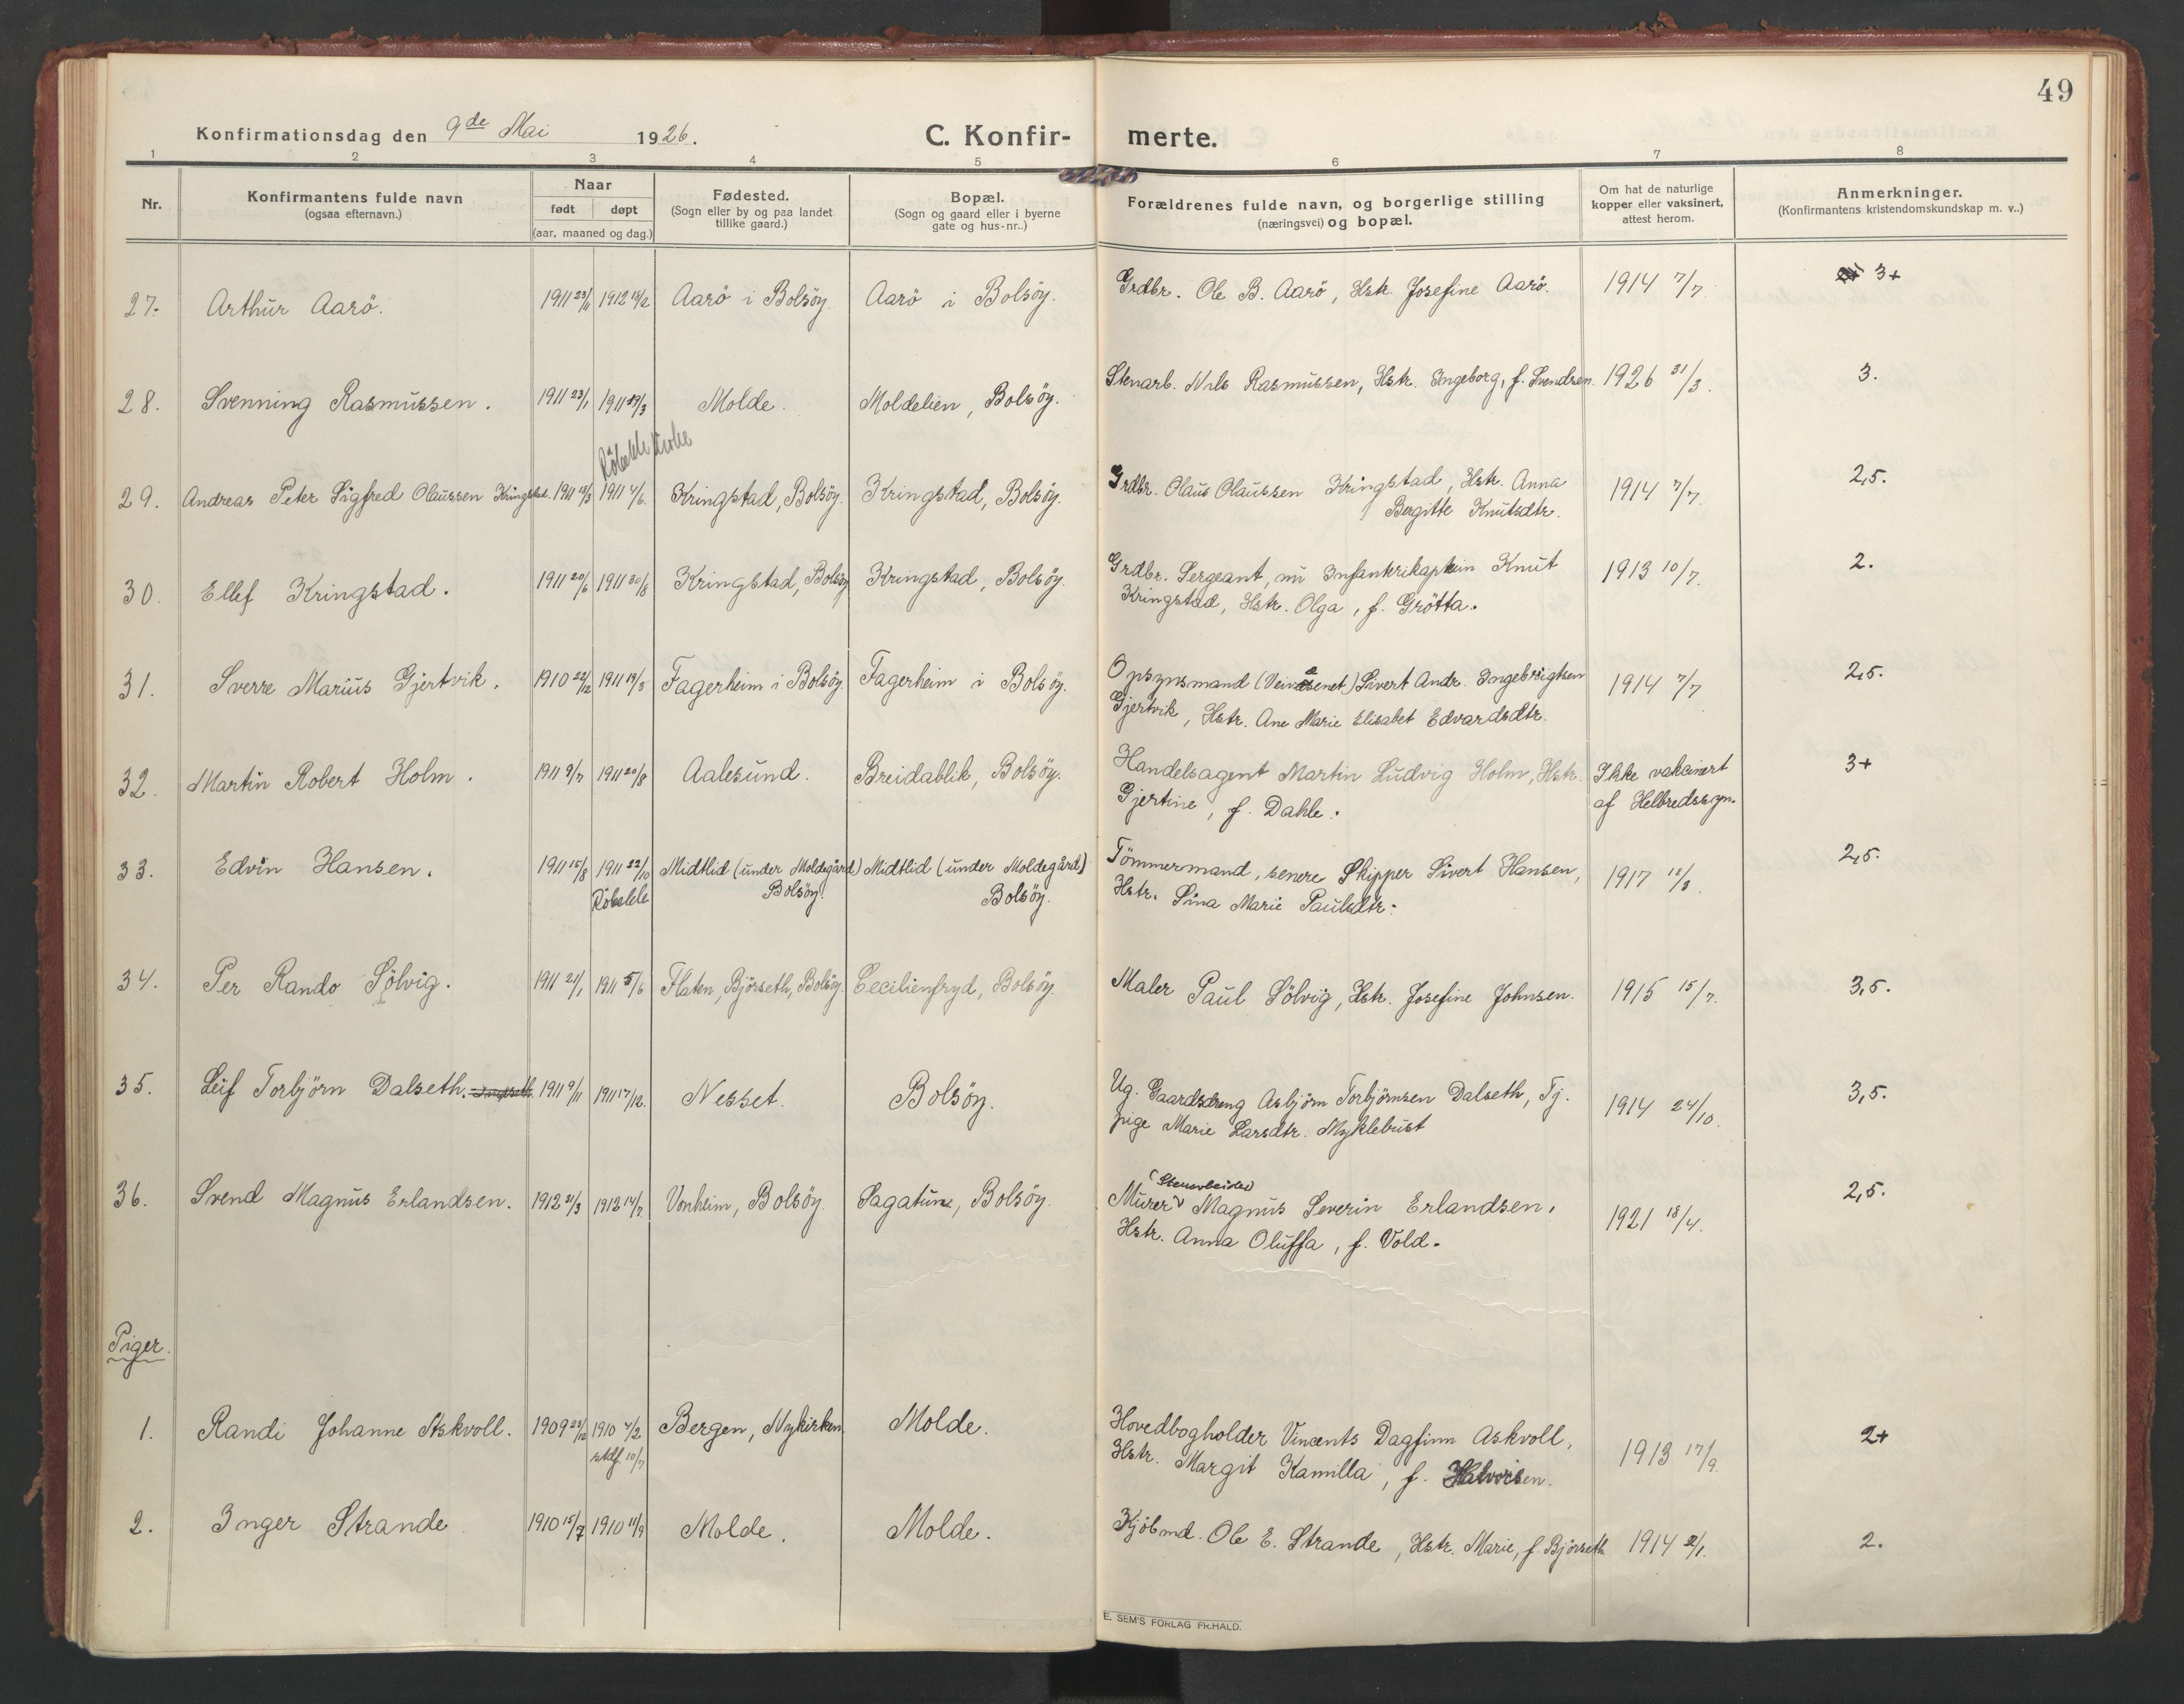 49
Konfirmationsdag den 9de Mai 1926.
C. Konfir- merte.
1 2 3 4 5 6 7 8
Nr.
Konfirmantens fulde navn
(ogsaa efternavn.)
Naar
født døpt
(aar, maaned og dag.)
Fødested.
(Sogn eller by og paa landet
tillike gaard.)
Bopæl.
(Sogn og gaard eller i byerne
gate og hus-nr..)
Forældrenes fulde navn, og borgerlige stilling
(næringsvei) og bopæl.
Om hat de naturlige
kopper eller vaksinert,
attest herom.
Anmerkninger.
(Konfirmantens kristendomskundskap m. v..)
27. Arthur Aarö. 1911 23/11 1912 18/2 Aarö i Bolsöy. Aarö i Bolsöy. Grdbr. Ole B. Aarö, Hstr. Josefine Aarö. 1914 7/7 3+
28. Svenning Rasmussen. 1911 23/1 1911 19/3 Molde. Moldelien, Bolsöy. Stenarb. Nils Rasmussen, Hstr. Ingeborg, f. Svendsen. 1926 31/3. 3.
Röbekk kirke
29. Andreas Peter Sigfred Olaussen Kringstad. 1911 13/3 1911 4/6. Kringstad, Bolsöy. Kringstad, Bolsöy. Grdbr. Olaus Olaussen Kringstad, Hstr. Anna 1914 7/7. 2,5.
Bergitte Knutsdtr.
30. Ellef Kringstad. 1911 20/6 1911 20/8 Kringstad, Bolsöy Kringstad, Bolsöy. Grdbr. Sergeant, nu Infanterikaptein Knut 1913 10/7. 2.
Kringstad, Hstr. Olga, f. Grötta.
31. Sverre Marius Gjertvik. 1910 22/12 1911 19/3 Fagerheim i Bolsöy. Fagerheim i Bolsöy. Opsynsmand (Veivæsenet) Sivert Andr. Ingebrigtsen 1914 7/7 2,5.
Gjertvik, Hstr. Ane Marie Elisabet Edvardsdtr.
32. Martin Robert Holm. 1911 9/7 1911 20/8 Aalesund. Breidablik, Bolsöy. Handelsagent Martin Ludvig Holm, Hstr. Ikke vakcinert 3+
Gjertine, f. Dahle. af Helbredshyn.
33. Edvin Hansen. 1911 15/8 1911 22/10 Midtlid (under Moldegård) Midtlid (under Moldegård) Tömmermand, senere Skipper Sivert Hansen, 1917 18/8. 2,5.
Röbekk Bolsöy. Bolsöy. Hstr. Sina Marie Paulsdtr.
34. Per Rando Sölvig. 1911 21/1 1911 5/6 Flaten, Björseth, Bolsöy. Cecilienfryd, Bolsöy. Maler Paul Sölvig, Hstr. Josefine Johnsen. 1915 15/7. 3,5.
35. Leif Torbjörn Dalseth. 1911 9/11 1911 17/12. Nesset. Bolsöy. Ug. Gaardsdreng Asbjörn Torbjörnsen Dalseth, Tj. 1914 24/10. 3,5.
pige Marie Larsdtr. Myklebust
36. Svend Magnus Erlandsen. 1912 31/3 1912 14/7. Vonheim, Bolsöy. Sagatun, Bolsöy. (Stenarbeider)
Murer Magnus Severin Erlandsen, 1921 18/4. 2,5.
Hstr. Anna Oluffa, f. Vold.
Piger.
1. Randi Johanne Askvoll. 1909 23/12 1910 4/2 Bergen, Nykirken Molde. Hovedbogholder Vincents Dagfinn Askvoll, 1913 17/9. 2+
stdf. 10/7 Hstr. Margit Kamilla, f. Halvorsen.
2. Inger Strande. 1910 15/7 1910 11/9 Molde. Molde. Kjöbmd. Ole E. Strande, Hstr. Marie, f. Björseth 1914 2/1. 2.
E. SEM'S FORLAG FR.HALD.